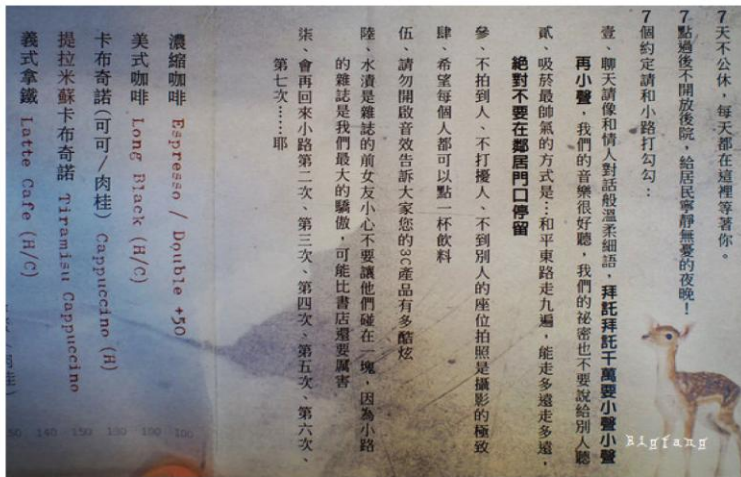 7天不公休，每天都在這裡等著你。
7點過後不開放後院，給居民寧靜無憂的夜晚！
7個約定請和小路打勾勾：
壹、聊天請像和情人對話般溫柔細語，拜託拜託千萬要小聲小聲
再小聲，我們的音樂很好聽，我們的祕密也不要說給別人聽
貳、吸菸最帥氣的方式是…和平東路走九遍，能走多遠走多遠，
絕對不要在鄰居門口停留
參、不拍到人、不打擾人、不到別人的座位拍照是攝影的極致
肆、希望每個人都可以點一杯飲料
伍、請勿開啟音效告訴大家您的3C產品有多酷炫
陸、水漬是雜誌的前女友小心不要讓他們碰在一塊，因為小路
的雜誌是我們最大的驕傲，可能比書店還要厲害
柒、會再回來小路第二次、第三次、第四次、第五次、第六次、
第七次……耶
濃縮咖啡 Espresso / Double +50
美式咖啡 Long Black (H/C)
卡布奇諾(可可/肉桂) Cappuccino (H)
提拉米蘇卡布奇諾 Tiramisu Cappuccino
義式拿鐵 Latte Cafe (H/C)
140 150 150 100 100
Bigfang